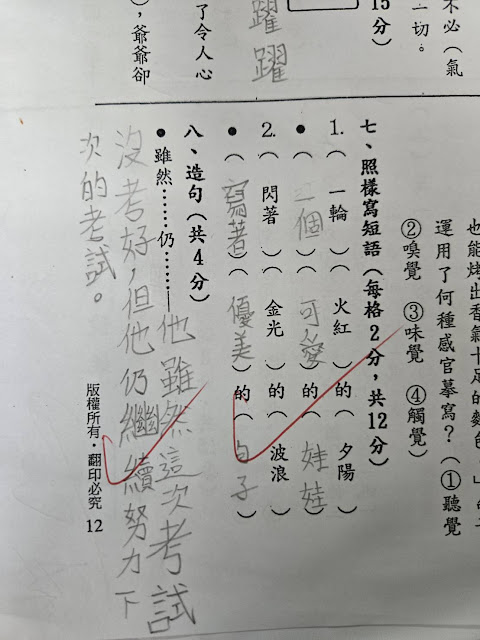 不必（氣
一切。
15分）
躍躍
了令人心
），爺爺卻
也能烤出香氣十足的麵包。」的句
運用了何種感官摹寫？（①聽覺
②嗅覺　③味覺　④觸覺）
七、照樣寫短語（每格2分，共12分）
1.（一輪）（火紅）的（夕陽）
●（一個）（可愛）的（娃娃）
2.（閃著）（金光）的（波浪）
●（寫著）（優美）的（句子）
八、造句（共4分）
●雖然……仍……—他雖然這次考試
沒考好，但他仍繼續努力下
次的考試。
版權所有・翻印必究 12